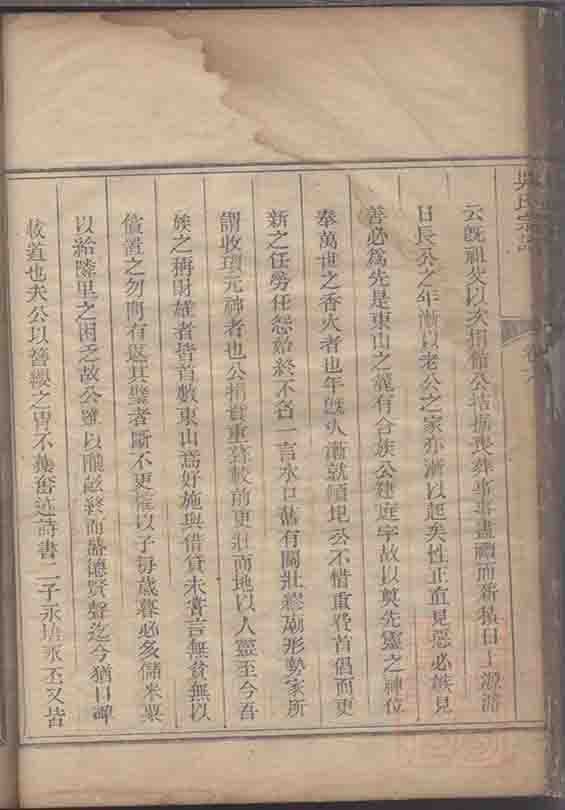 吳氏宗譜
云旣祖父以次捐館公拮据喪葬事事盡禮而新猷日上源濬
日長公之年漸以老公之家亦漸以起矣性正直見惡必嫉見
善必爲先是東山之麓有合族公建庭宇故以奠先靈之神位
奉萬世之香火者也年旣久漸就傾圯公不惜重費首倡而更
新之任勞任怨始終不吝一言水口舊有關壯繆廟形勢家所
謂收環元神者也公捐貲重葺較前更壯而地以人靈至今吾
族之稱財雄者皆首數東山焉好施與借貸未嘗言無貧無以
償置之勿問有返其璧者斷不更權以子每歲暮必多儲米粟
以給隣里之困乏故公雖以 終而盛德賢聲迄今猶口碑
收道也夫公以簪纓之胄不獲奮迹詩書二子永 永丕又皆